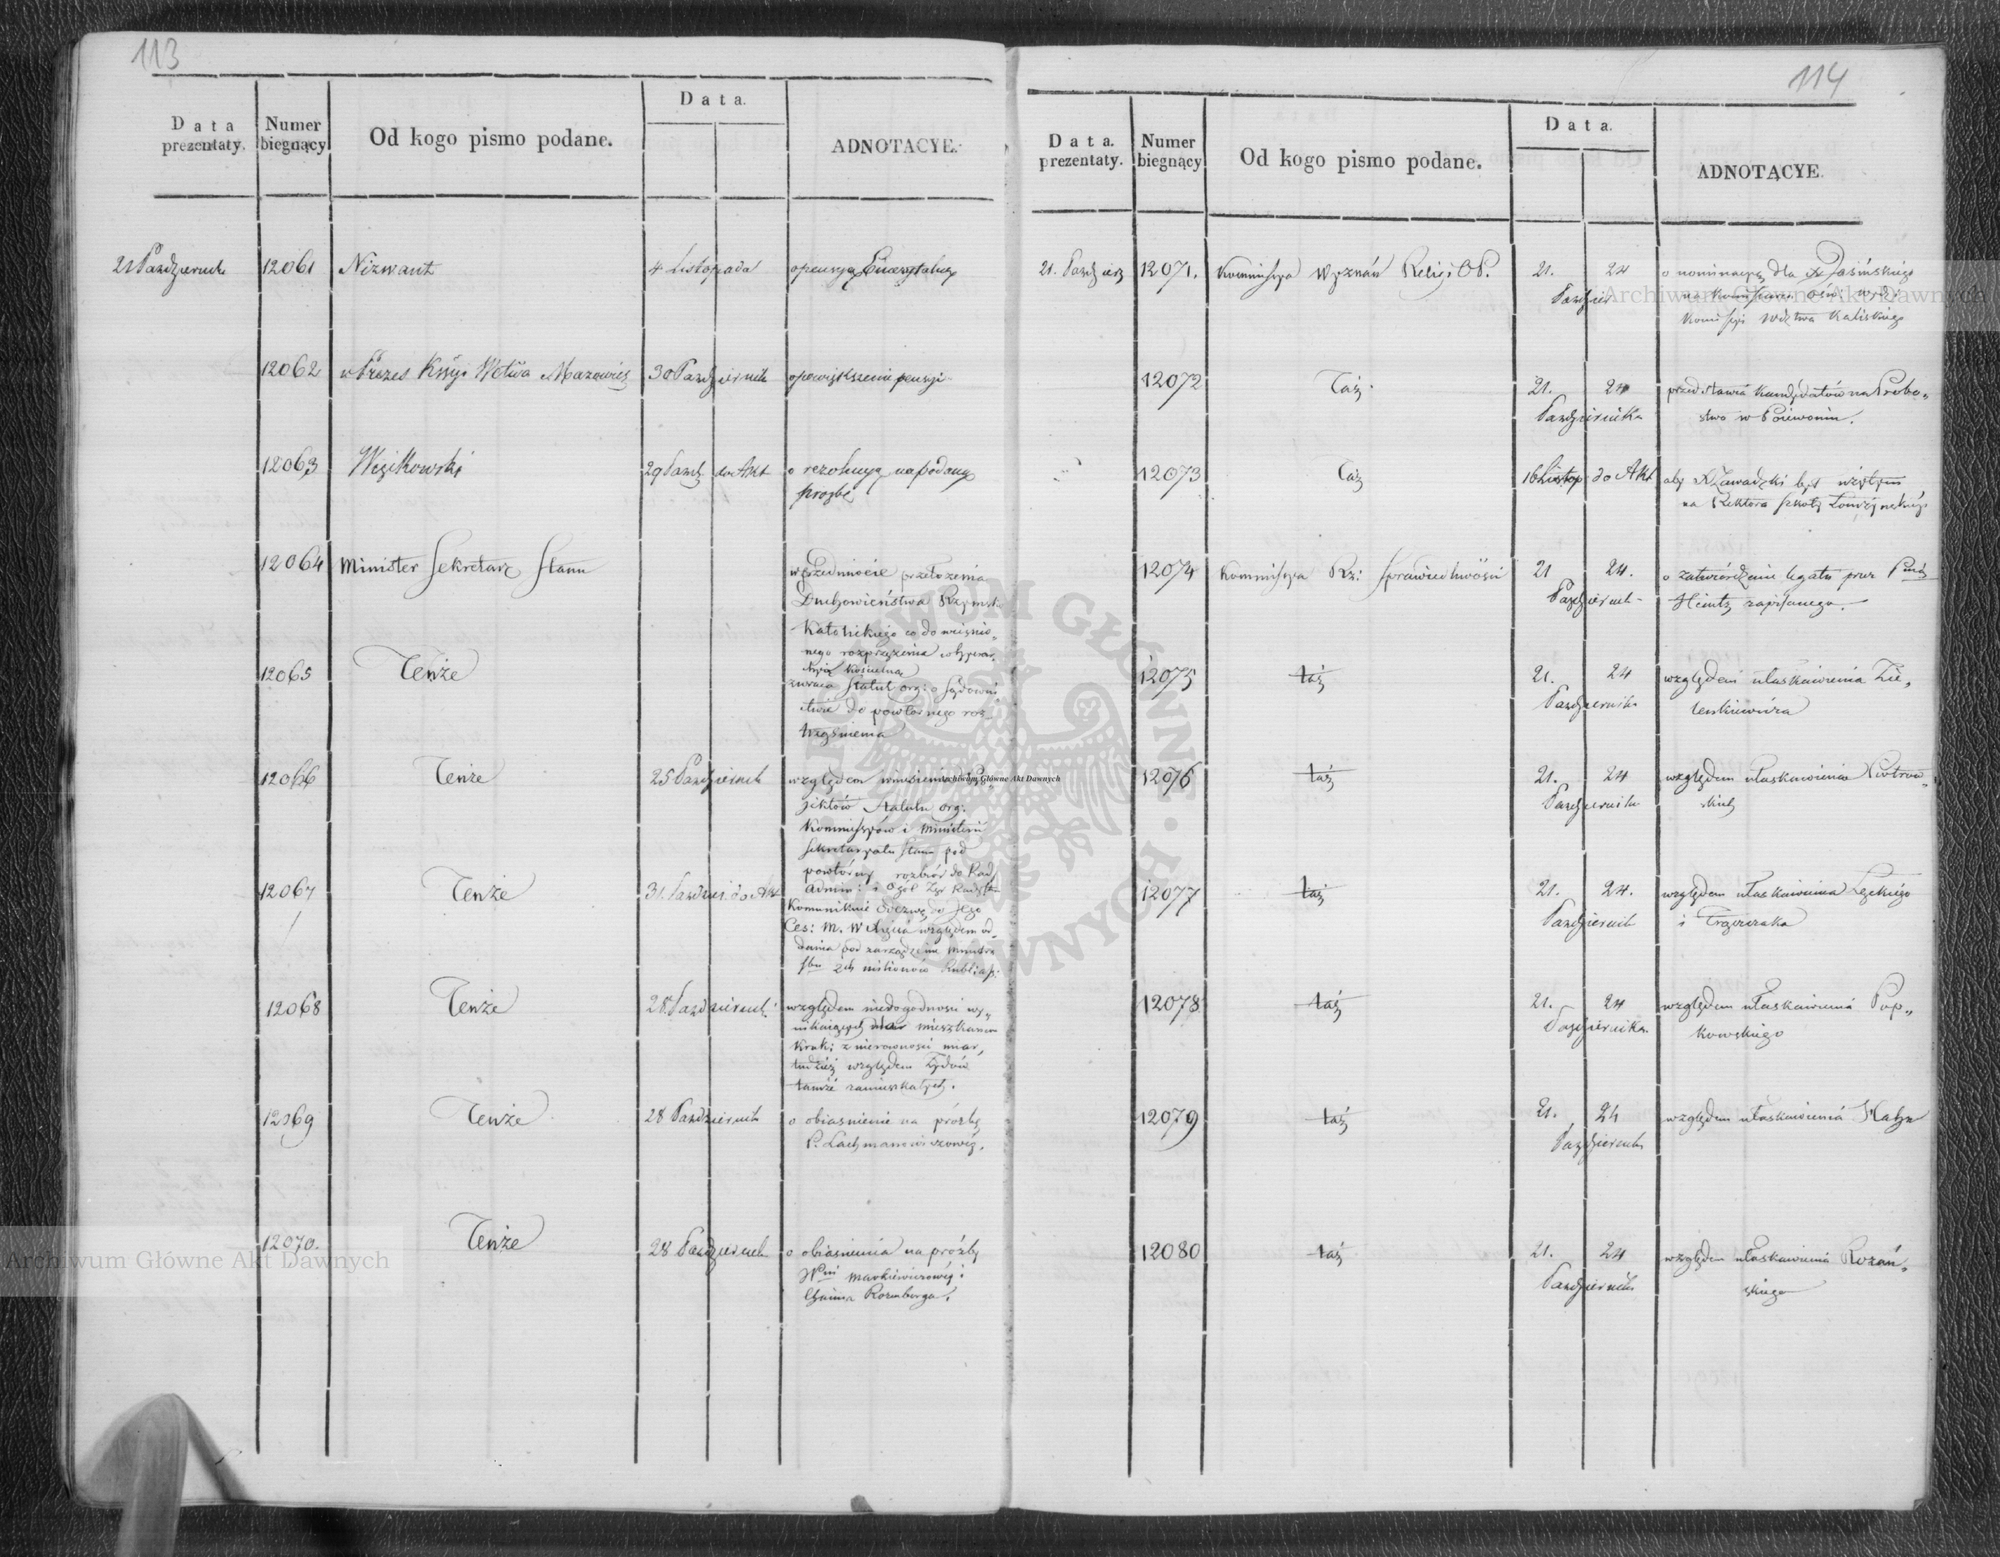 113
Data prezentaty.
Numer biegnący
Od kogo pismo podane.
Data.
ADNOTACYE.
21 Październik
12061
Nizwant
4 Listopada
o pensyą Emerytalną
12062
Prezes Wotwa Mazowiec
30 Październik
o powiększenie pensyi
12063
Wężikowski
29 Paźdz.
do Akt
o rezolucyą na podaną
prozbę
12064
Minister Sekretarz Stanu
w przedmiocie przełożenia
Duchowieństwa Rzymsk
Katolickiego co do
nego rozprzężenia
Kościelna
12065
Tenże
zwraca Statut org: o Sądowni
ctwie do powtórnego roz-
trząśnienia
12066
Tenże
25 Październik
względem wniesienia
jektów Statutu org:
Kommissyów i Minister
Sekretaryatu Stanu pod
powtórny rozbiór do Rad
Admin: i Ogól Zgr Rady Stan
12067
Tenże
31. Paździer. do Akt
Komunikuie Odezwę do Jego
Ces: M. W Xięcia względem od-
dania pod zarządzenie Ministra
Sbu 2ch milionów Rubli
12068
Tenże
28. Październik
względem niedogodności wy-
nikaiących dla mieszkańców
Krak: z nierówności miar,
tudzież względem Żydów
tamże zamieszkałych.
12069
Tenże
28 Październik
o obiasnienie na prózby
P. Lachmanowiczowéy.
12070.
Tenże
28 Październik
o obiasnienia na prózby
Wni Markiewiczowéy i
Chaima Rozenberga.
114
Data. prezentaty.
Numer biegnący
Od kogo pismo podane.
Data.
ADNOTACYE.
21. Paździer
12071.
Kommissya Wyznań Relig: i OP.
21.
24
Paździer
o nominacyą dla X Jasińskiego
na Kommissarza Ośw: wydz:
Komissyi Wdztwa Kaliskiego
12072
Taż.
21.
24
Października
przedstawia kandydatów na Probo-
stwo w Pniewoniu.
12073
Taż
16 Listop
do Akt
aby X Zawadzki był wziętym
na Rektora Szkoły Łomżyńskiéy
12074
Kommissya Rz: Sprawiedliwości
21
24.
Październik
o zatwierdzenie legatu przez Pnią
Heintz zapisanego.
12075
taż
21.
24
Październik
względem ułaskawienia Zie-
lenkiewicza
12076
taż
21.
24
Październik
względem ułaskawienia Piotrow-
skiéy
12077
taż
21.
24.
Październik
względem ułaskawienia Łęckiego
i Trzęszaka
12078
taż
21.
24
Października
względem ułaskawienia Pop-
kowskiego
12079
taż
21.
24
Październik
względem ułaskawienia Hatze
12080
taż
21.
24
Październik
względem ułaskawienia Rozań-
skiego
Archiwum Główne Akt Dawnych
Archiwum Główne Akt Dawnych
Archiwum Główne Akt Dawnych